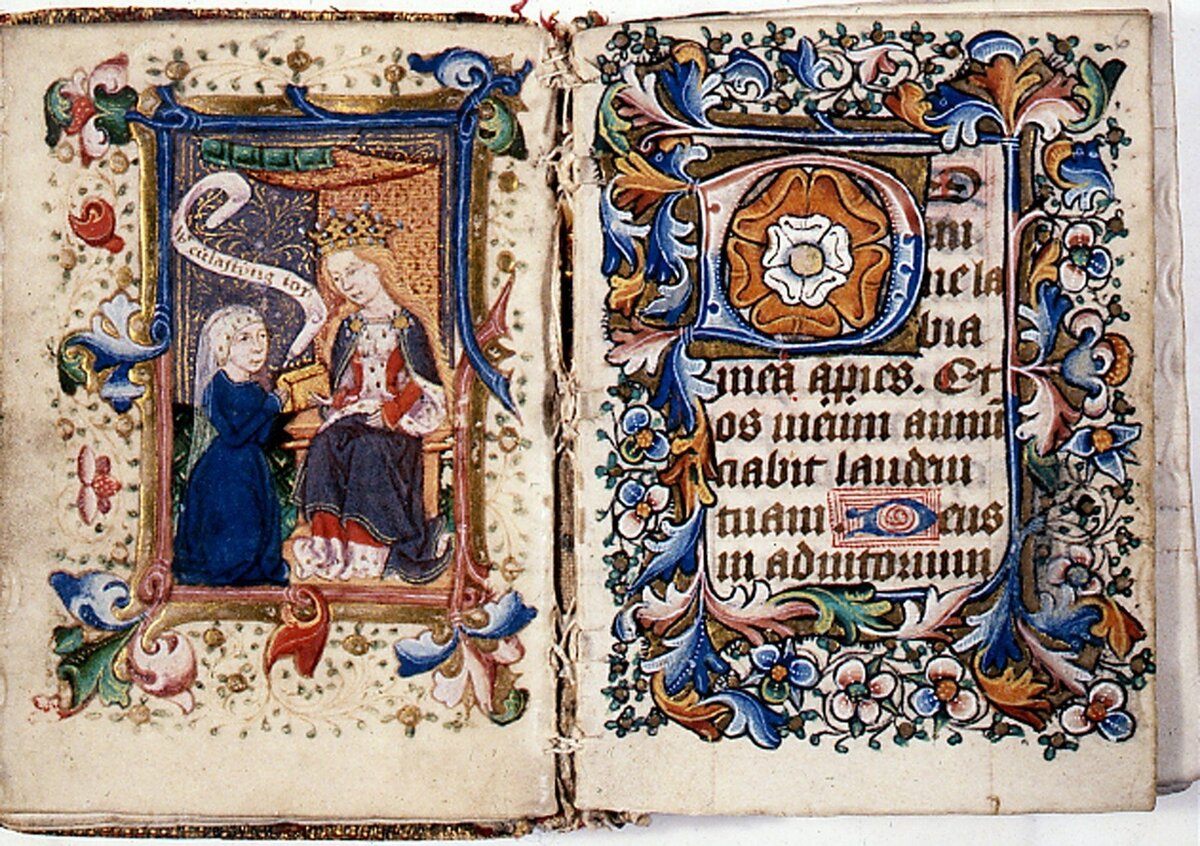 euerlastyng ioy
6
DO
mi
ne la
bia
mea apies. Et
os meum annū
ciabit laudem
tuam Deus
in adiutorium